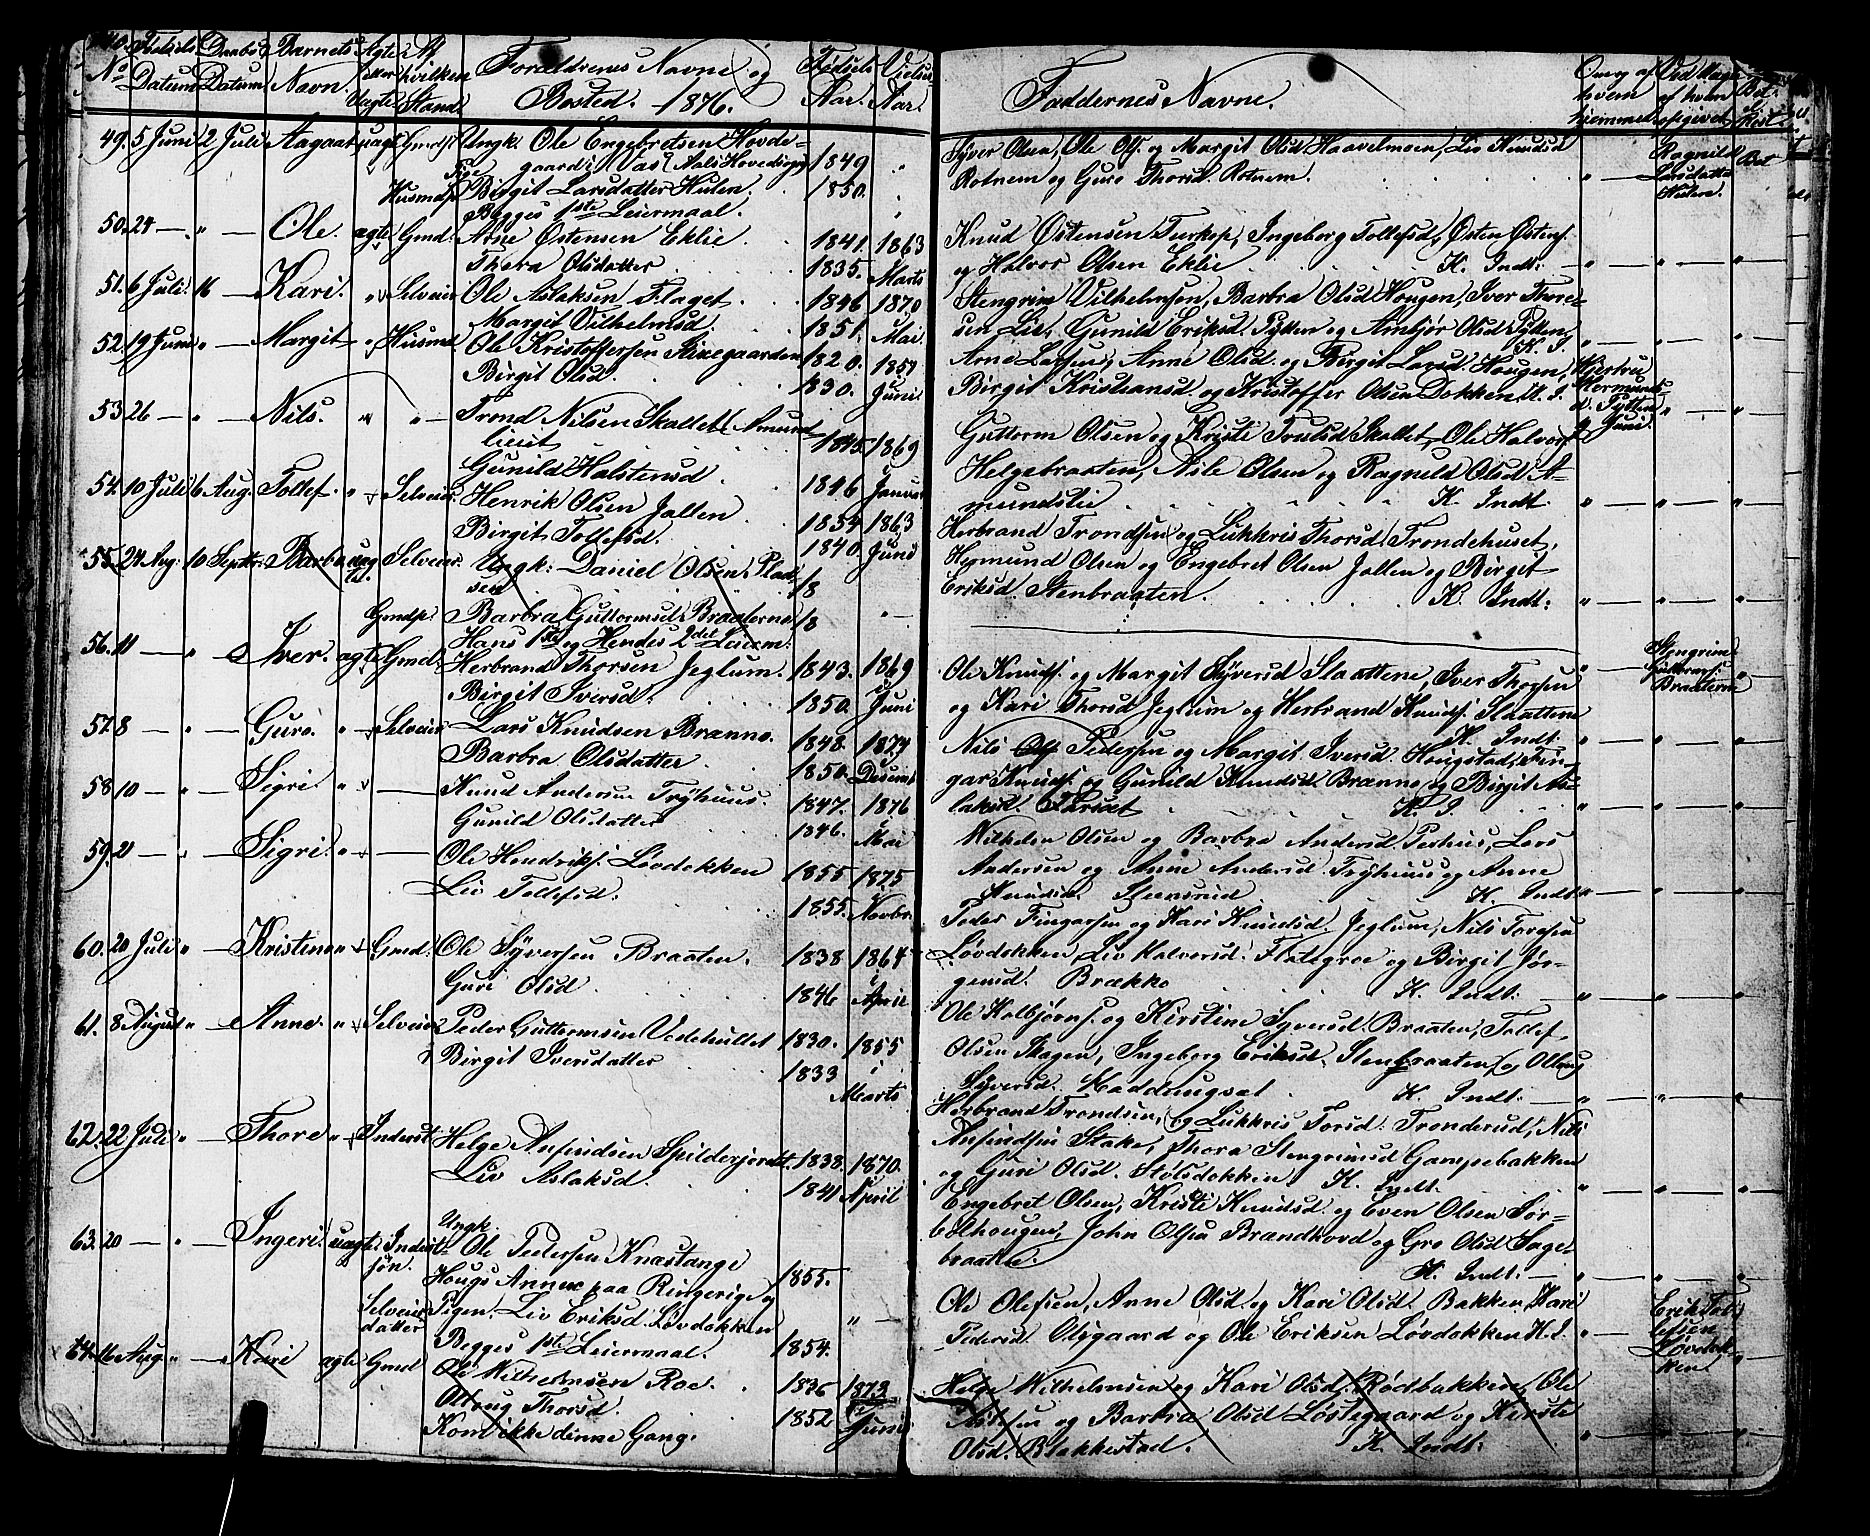 No Fødsels Datum Daabs Datum Barnets Navn. Ægte eller Uægte Af hvilken Stand Forældrenes Navne og Bosted. 1876. Fødsels Aar. Vielses Aar.
49. 5 Juni 2 Juli Aagaat uægt Gmdst Ungk. Ole Engebretsen Hovde-
gaard, Vas, Aals Hovedsogn 1849
Husmdsp Pige Birgit Larsdatter Hulen. 1850.
Begges 1ste Leiermaal.
50. 24 — " — Ole. ægte Gmd. Arne Østensen Eklie. 1841. 1863
Thora Olsdatter 1835. Marts
51. 6 Juli 16 — Kari. " Selveier Ole Aslaksen Flaget. 1846 1870
Margit Vilhelmsd. 1851. Mai.
52. 19 Juni " — Margit " Husmd. Ole Kristoffersen Stinegaarden 1820. 1857
Birgit Olsd. 1830. Juni
53. 26 — " — Nils. " " — Trond Nilsen Skallet (Amund-
lieit 1845. 1869
Gunild Halstensd. 1846 Januar
54. 10 Juli 6 Aug. Tollef. " Selveier. Henrik Olsen Jallen 1854 1863
Birgit Tollefsd. 1840. Juni
55. 24 Aug. 10 Septbr. Barbro uægt. Selveier. Ungk: Daniel Olsen Plads-
sen 18
Gmdsp. Barbra Guttormsd. Braaterne 18 " —
Hans 1ste og Hendes 2det Leierm:
56. 11 — " — Iver. ægte Gmd. Herbrand Thorsen Jeglum. 1843. 1869
Birgit Iversd. 1850. Juni
57. 8 — " — Guro. " Selveier Lars Knudsen Brænno. 1848. 1874
Barbra Olsdatter. 1850. Decembr
58. 10 — " — Sigri. " — Knud Andersen Tryhuus. 1847. 1876
Gunild Olsdatter 1846. Mai
59. 21 — " — Sigri. " — Ole Hendriks. Løvdokken 1855 1875
Liv Tollefsd. 1855. Novbr.
60. 20 Juli " — Kristine " Gmd. Ole Syversen Braaten. 1838 1864
Guri Olsd. 1846 April
61. 8 August " — Anne. " Selveier Peder Guttormsen Vedehullet 1830. 1855
Birgit Iversdatter 1833 i
Marts
62. 22 Juli " — Thore " Inderst Helge Anfindsen Spilderjordet 1838. 1870.
Liv Aslaksd. 1841 April
63. 20 — " — Ingeri. uægte Inderst- Ungk. Ole Pedersen Knastange
søn. Hougs Annex paa Ringerige og 1855.
Selveier- Pigen Liv Eriksd. Løvdokken " —
datter Begges 1ste Leiermaal. 1854.
64. 16 Aug. " — Kari ægte Gmd Ole Wilhelmsen Roe. 1836 1873
Olloug Thorsd. 1852 i Juni
Kom ikke denne Gang.
Faddernes Navne. Omv. af hvem hjemmed. Ved Uægte af hvem opgivet
Syver Olsen, Ole Ols. og Margit Olsd Haavelmoen, Liv Knudsd
Rotnem og Guro Thorsd. Rotnem. " — Ragnild Larsdatter Bot
Knud Østensen Turkop, Ingeborg Tollefsd, Østen Østens.
og Halvor Olsen Eklie K. Indt: " — " — "
Stengrim Vilhelmsen, Barbra Olsd Hougen, Iver Thore-
sen Lie, Gunild Eriksd. Pytten og Ambjør Olsd Pytten. K. I. " — " — "
Arne Larsen, Anne Olsd. og Birgit Larsd. Hougen,
Birgit Kristiansd og Kristoffer Olsen Dokken, K. I. Kjestru Hermunds-
d. Pytten " — "
Guttorm Olsen og Kristi Trulsd Skallet, Ole Halvors. g. Juni.
Helgebraaten, Nils Olsen og Ragnild Olsd A-
mundslie K. Indt. " — " — "
Herbrand Trondsen og Lukkris Thorsd. Trondehuset,
Hermund Olsen og Engebret Olsen Jallen og Birgit
Eriksd. Stenbraaten. K. Indt: " — " — "
" — Stengrim Guttorms. Braaterne "
Ole Knuds. og Margit Syversd Slaattene, Iver Thorsen
og Kari Thorsd Jeglum og Herbrand Knuds. Slaattene
K. Indt: " — " — "
Nils Pedersen og Margit Iversd. Hougstad, Fin-
gar Knuds. og Gunild Knudsd Brænno og Birgit As-
laksd. K. I. " — " — "
Wilhelm Olsen og Barbra Andersd Perhus, Lars
Andersen og Anne Andersd Tryhuus og Anne
Knudsd. Steensrud K. Indt. " — " — "
Peder Fingarsen og Kari Knudsd. Jeglum, Nils Toresen
Løvdokken, Liv Halvorsd. Flategroe og Birgit Jør-
gensd. Brække K. Indt: " — " — "
Ole Kolbjørns. og Kirstine Syversd. Braaten, Tollef
Olsen Skagen, Ingeborg Eriksd. Stenbraaten og Olloug
Syversd. Haddungsat K. Indt: " — " — "
Herbrand Trondsen, og Lukkris Torsd. Tronderud, Nils
Anfindsen Stake, Thora Stengrimsd Gampebakken
og Guri Olsd. Stølsdokken K. Indt. " — " — "
Engebret Olsen, Kristi Knudsd. og Even Olsen Sør-
bølhougen, John Olsen Brandhovd og Gro Olsd Sage-
braaten. K. Indt. — " — " — "
Ole Olesen, Anne Olsd. og Kari Olsd. Bakken, Kari
Pedersd. Olsgaard og Ole Eriksen Løvdokken K. I. " — Erik Tol-
lefsen
Løvdok-
ken
Helge Wilhelmsen og Kari Olsd. Rødbakken, Ole
og Barbra Olsd Løstegaard og Kirste
Olsd. Blakkestad. K. Indt: " — " — "